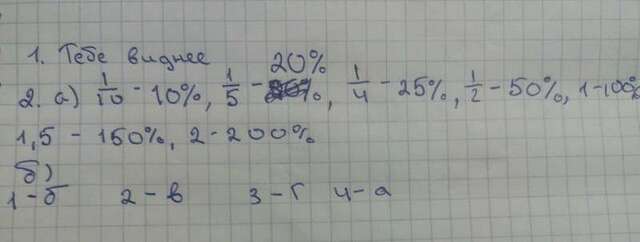 1. Тебе виднее
2. а) 1/10 - 10%, 1/5 - 20%, 1/4 - 25%, 1/2 - 50%, 1-100%
1,5 - 150%, 2-200%
б)
1-б 2-в 3-г 4-а